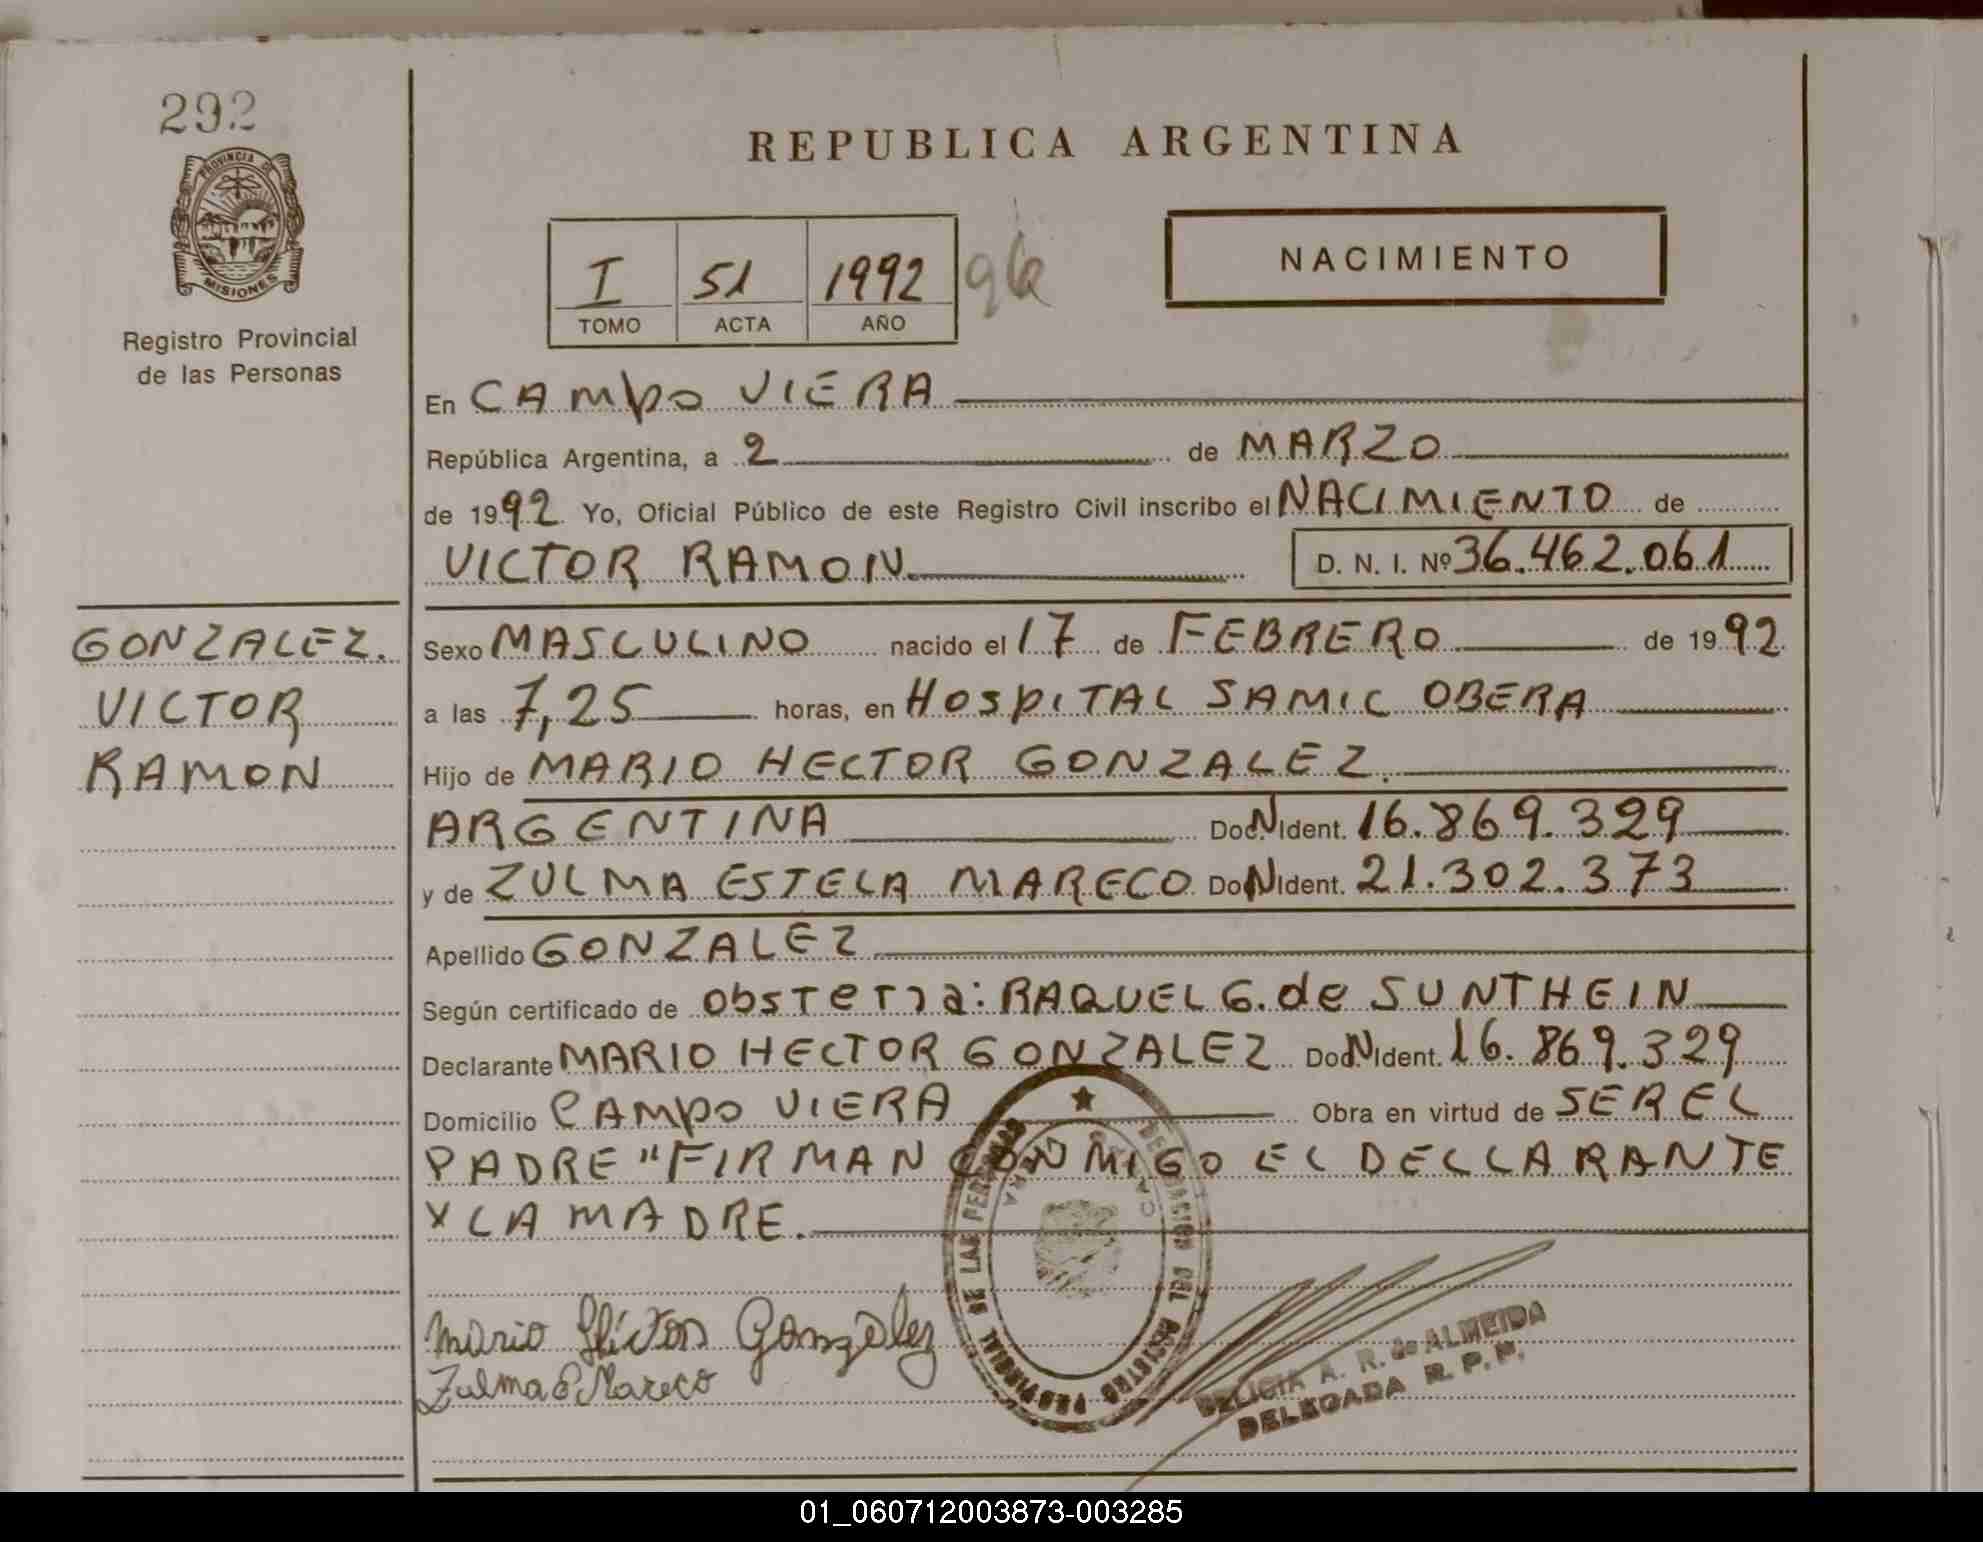 292
PROVINCIA DE
MISIONES
Registro Provincial
de las Personas
REPUBLICA ARGENTINA
I 51 1992 96
TOMO ACTA AÑO
NACIMIENTO
En CAMPO VIERA
República Argentina, a 2 de MARZO
de 1992 Yo, Oficial Público de este Registro Civil inscribo el NACIMIENTO de
VICTOR RAMON D. N. I. Nº 36.462.061
GONZALEZ.
VICTOR
RAMON
Sexo MASCULINO nacido el 17 de FEBRERO de 1992
a las 7,25 horas, en HOSPITAL SAMIC OBERA
Hijo de MARIO HECTOR GONZALEZ.
ARGENTINA Doc.N Ident. 16.869.329
y de ZULMA ESTELA MARECO Doc.N Ident. 21.302.373
Apellido GONZALEZ
Según certificado de obsTeTra: RAQUEL G. de SUNTHEIN
Declarante MARIO HECTOR GONZALEZ Doc.N Ident. 16.869.329
Domicilio CAMPO VIERA Obra en virtud de SER EL
PADRE "FIRMAN CONMIGO EL DECLARANTE
Y LA MADRE.
Mario Héctor González
Zulma E Mareco
DELEGACION DEL REGISTRO PROVINCIAL DE LAS PERSONAS
DELICIA A. R. de ALMEIDA
DELEGADA R. P. P.
01_060712003873-003285